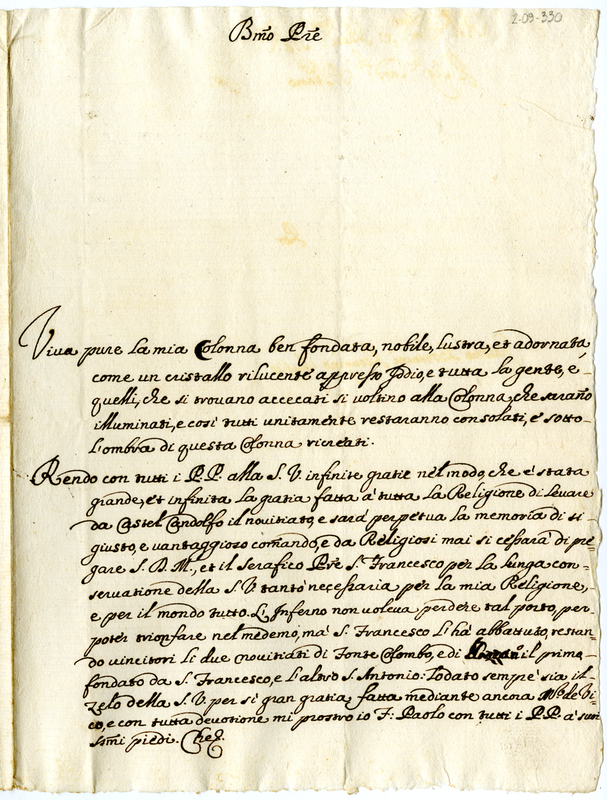 2-09-330
Bmo Pre
Viva pure la mia Colonna ben fondata, nobile, lustra, et adornata
come un cristallo rilucente appresso Iddio, e tutta la gente, e
quelli, che si trovano accecati si voltino alla Colonna, che sarano
illuminati, e così tutti unitamente restaranno consolati, e sotto
l'ombra di questa Colonna ricreati.
Rendo con tutti i P.P. alla S. V. infinite gratie nel modo, che è stata
grande, et infinita la gratia fatta à tutta la Religione di levare
da Castel Gandolfo il novitiato, e sarà perpetua la memoria di si
giusto, e vantaggioso comando, e da Religiosi mai si cessarà di pre=
gare S. D. M., et il Serafico Pre S. Francesco per la lunga con=
servatione della S. V. tanto necessaria per la mia Religione,
e per il mondo tutto. Li Inferno non voleva perdere tal posto, per
poter trionfare nel medemo, ma S. Francesco li hà abbattuto, restan=
do vincitori li due novitiati di Fonte Colombo, e di il primo
fondato da S. Francesco, e l'altro S. Antonio. Lodato sempre sia il
zelo della S. V. per si gran gratia fatta mediante ancora de Vi=
co, e con tutta devotione mi prostro io F. Paolo con tutti i P.P. à suoi
ssmi piedi. Che